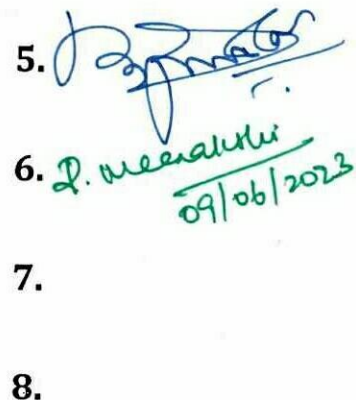 5.
6. R. Meenakshi
09/06/2023
7.
8.